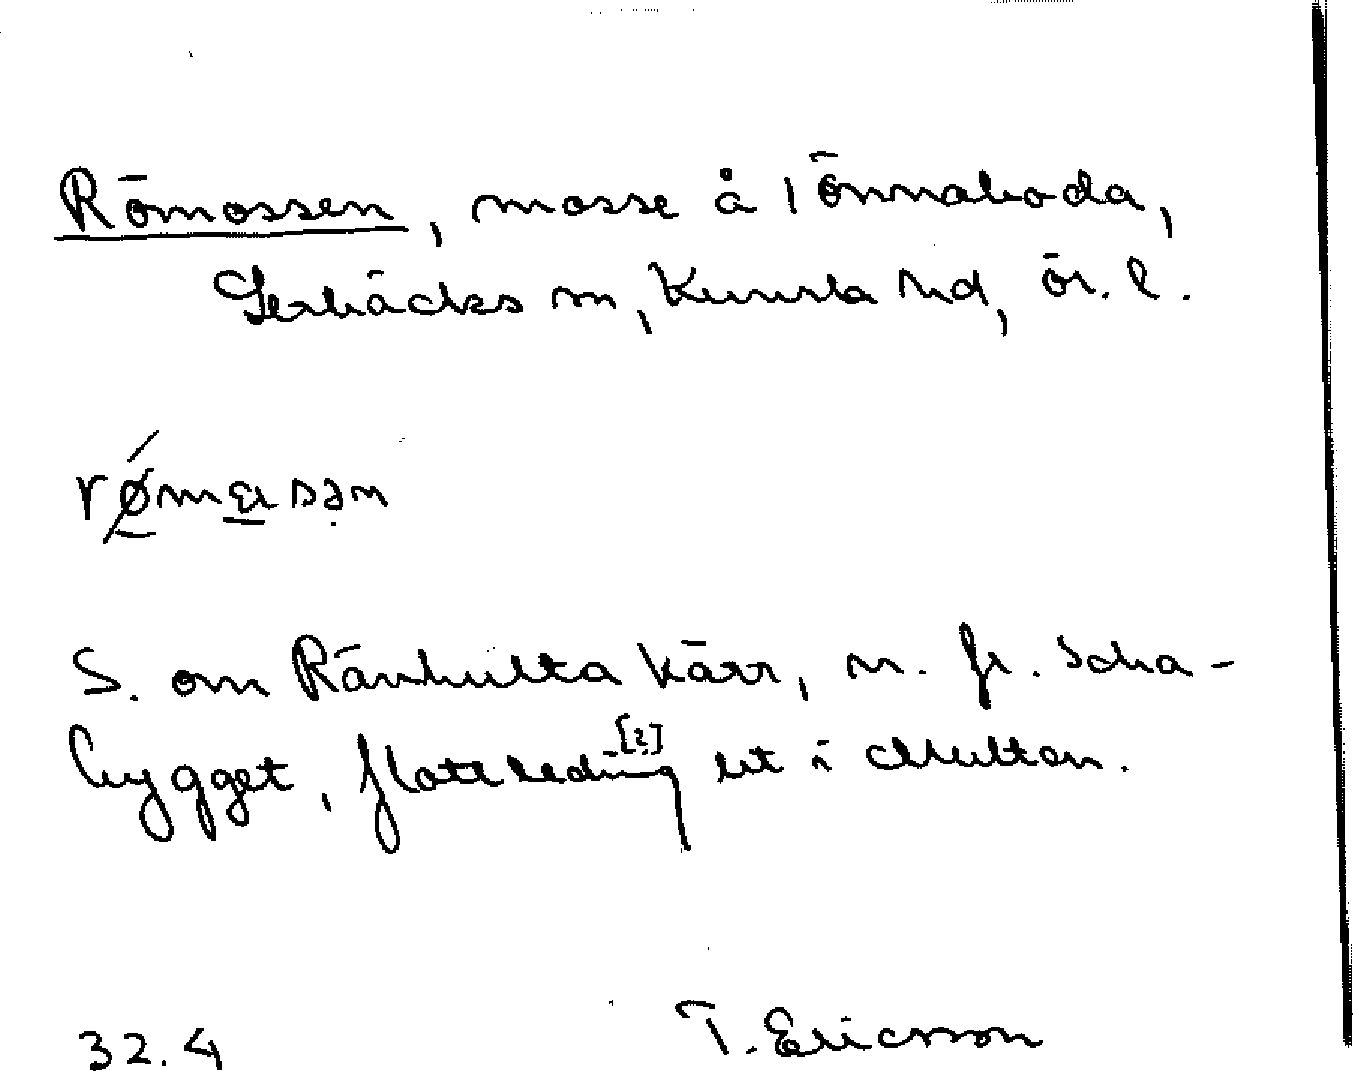 Römossen, mosse å Tönnaboda,
Gerbäcks m, Kumla hd, ör. l.
røm sən
S. om Ränhulta kärr, n. fr. Scha-
bygget, flat ledning [?] ut i Multon.
32.4 T. Ericsson